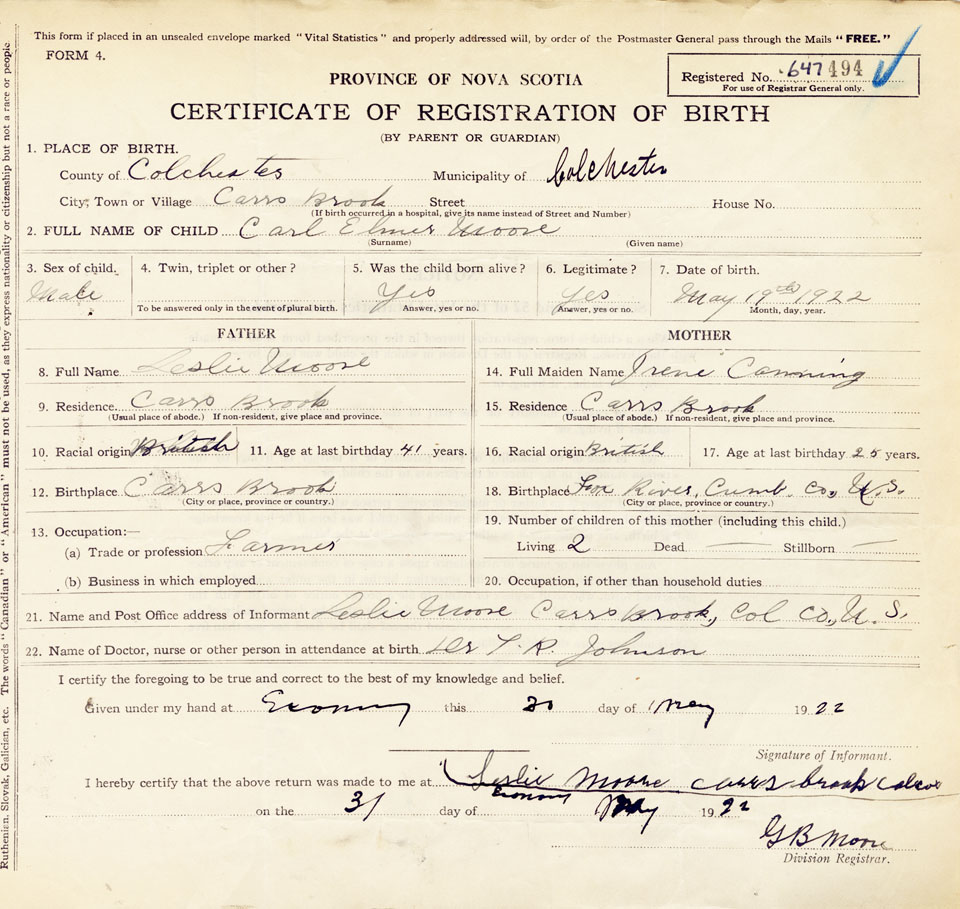 This form if placed in an unsealed envelope marked "Vital Statistics" and properly addressed will, by order of the Postmaster General pass through the Mails "FREE."
FORM 4.
PROVINCE OF NOVA SCOTIA
Registered No. 647494
For use of Registrar General only.
CERTIFICATE OF REGISTRATION OF BIRTH
(BY PARENT OR GUARDIAN)
1. PLACE OF BIRTH.
County of Colchester Municipality of Colchester
City, Town or Village Carrs Brook Street House No.
(If birth occurred in a hospital, give its name instead of Street and Number)
2. FULL NAME OF CHILD Carl Elmer Moore
(Surname) (Given name)
3. Sex of child. 4. Twin, triplet or other? 5. Was the child born alive? 6. Legitimate? 7. Date of birth.
Male Yes Yes May 19th 1922
To be answered only in the event of plural birth. Answer, yes or no. Answer, yes or no. Month, day, year.
FATHER MOTHER
8. Full Name Leslie Moore 14. Full Maiden Name Irene Canning
9. Residence Carrs Brook 15. Residence Carrs Brook
(Usual place of abode.) If non-resident, give place and province. (Usual place of abode.) If non-resident, give place and province.
10. Racial origin British 11. Age at last birthday 41 years. 16. Racial origin British 17. Age at last birthday 25 years.
12. Birthplace Carrs Brook 18. Birthplace Fox River, Cumb. Co., N.S.
(City or place, province or country.) (City or place, province or country.)
13. Occupation:— 19. Number of children of this mother (including this child.)
(a) Trade or profession Farmer Living 2 Dead — Stillborn —
(b) Business in which employed 20. Occupation, if other than household duties
21. Name and Post Office address of Informant Leslie Moore Carrs Brook, Col Co., N.S.
22. Name of Doctor, nurse or other person in attendance at birth Dr T. R. Johnson
I certify the foregoing to be true and correct to the best of my knowledge and belief.
Given under my hand at Economy this 30 day of May 1922
Signature of Informant.
I hereby certify that the above return was made to me at Leslie Moore Carrs brook Colco
Economy
on the 31 day of May 1922
G B Moore
Division Registrar.
Ruthenian, Slovak, Galician, etc. The words "Canadian" or "American" must not be used, as they express nationality or citizenship but not a race or people